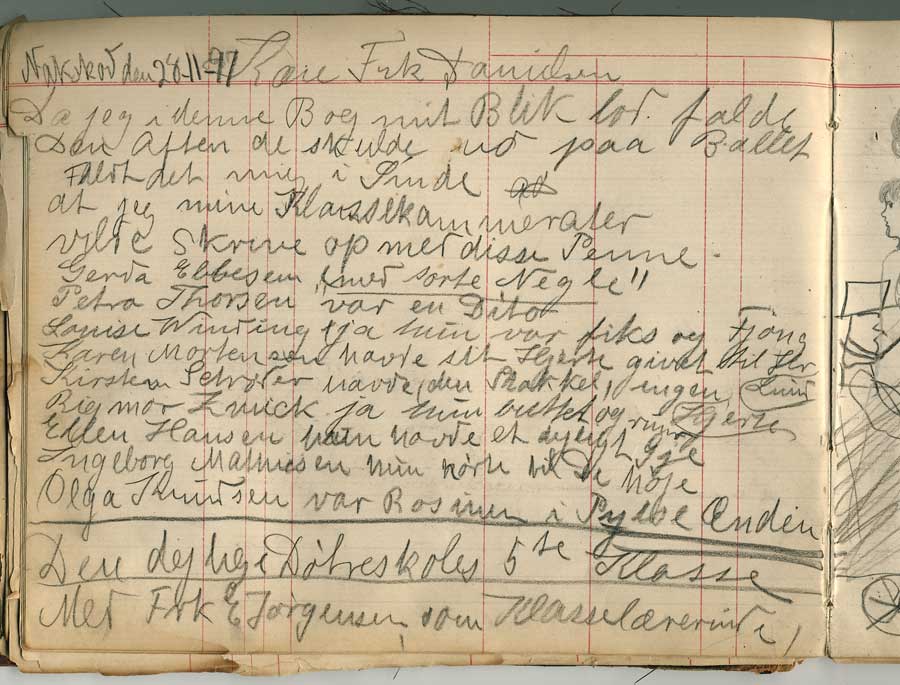 Nakskov den 28-11-97 Kære Frk Danielsen
Da jeg i denne Bog mit Blik lod falde
Den Aften de skulde ud paa Ballet
Faldt det mig i Sinde
at jeg mine Klassekammerater
vilde skrive op med disse Penne.
Gerda Ebbesen "med sorte Negle"
Petra Thorsen var en Dito
Louise Winding ja hun var fiks og Fjong
Karen Mortensen havde sit Hjerte givet til Hr
Kirsten Schrøder havde, den Stakkel, ingen Lund
Rigmor Zwick ja hun buttet og rund Hjerte
Ellen Hansen hun havde et dejligt Øje
Ingeborg Mathiesen hun hørte til De høje
Olga Knudsen var Rosinen i Pylse Enden
Den dejlige Døtreskoles 5te Klasse
Med Frk E Jørgensen som Klasselærerinde,